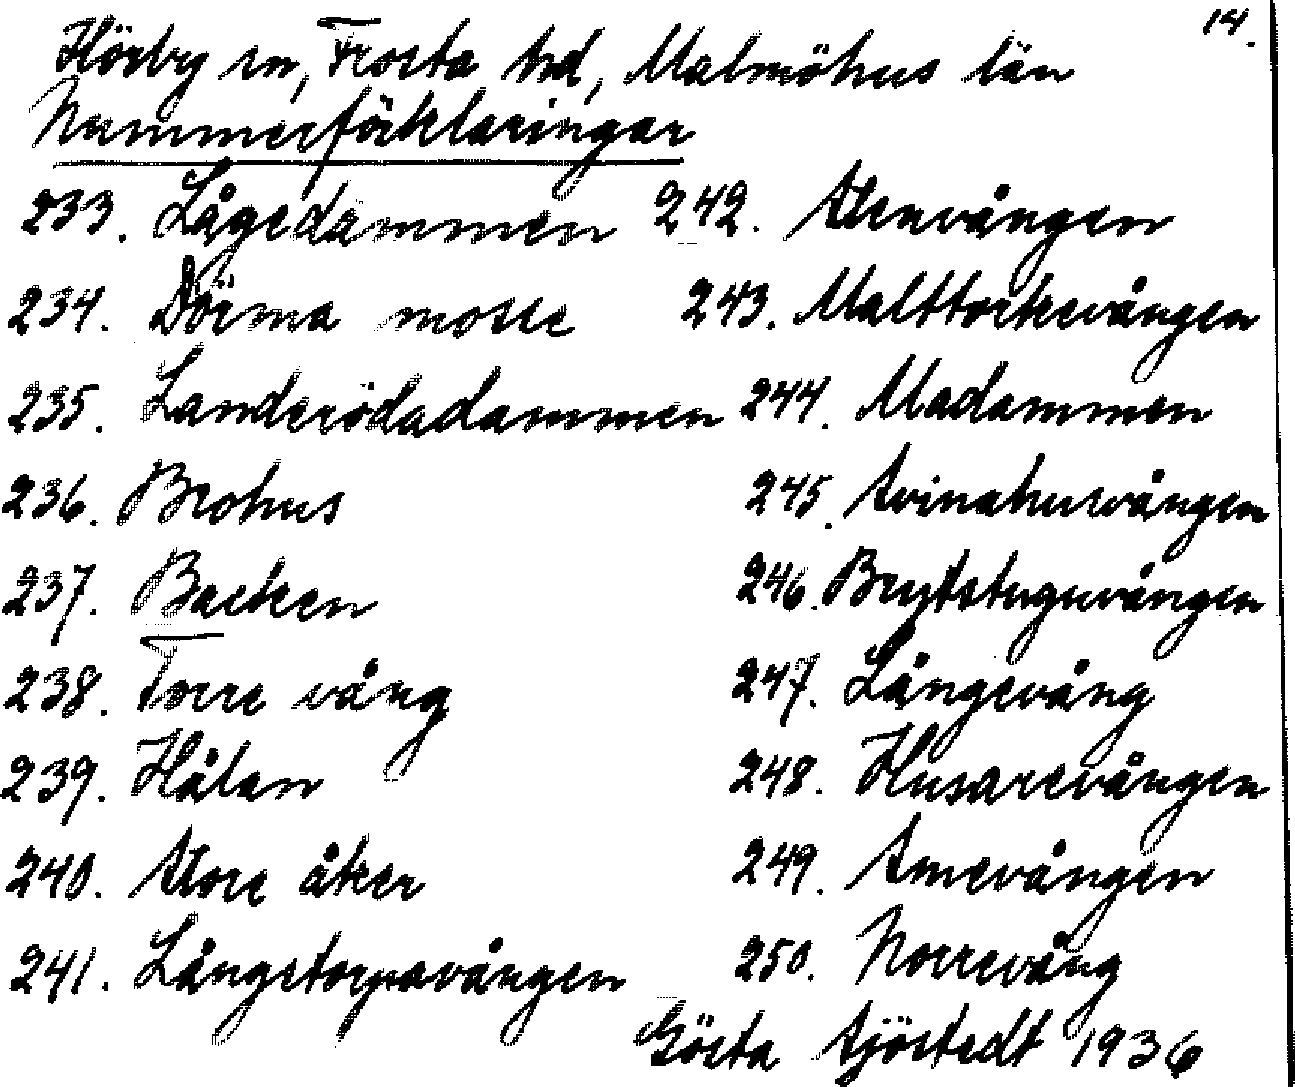 14.
Hörby sn, Frosta hd, Malmöhus län
Nummerförklaringar
233. Lågedammen
234. Dörma mosse
235. Landerödadammen
236. Brohus
237. Backen
238. Torre vång
239. Hålan
240. Store åker
241. Långstorpavången
242. Stenvången
243. Malttorkevången
244. Madammen
245. Svinahusvången
246. Brytstuguvången
247. Långevång
248. Husarevången
249. Smevången
250. Norrevång
Gösta Sjöstedt 1936